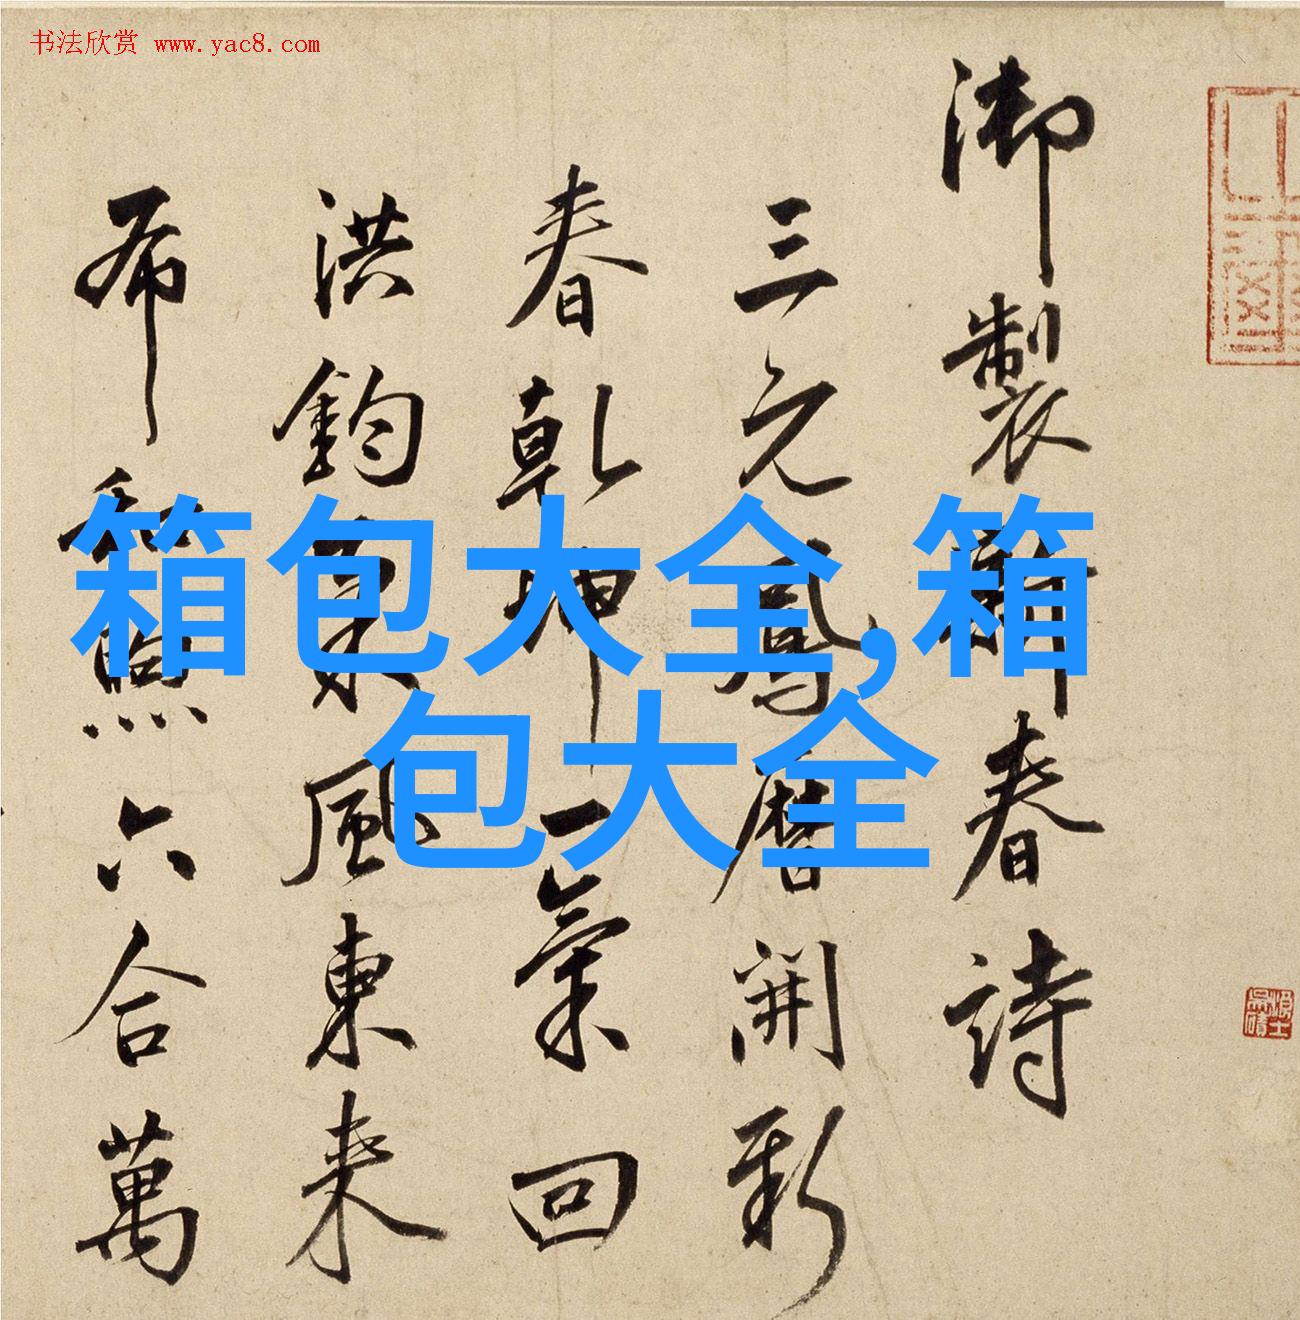 书法欣赏 www.yac8.com
箱包大全,箱
包大全
御製新春詩
三元鳳曆開新
春乾坤一氣回
洪鈞風東来
布和煦六合萬